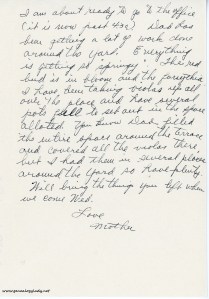 I am about ready to go to the office
(it is now past 4:30). Dad has
been getting a lot of work done
around the yard. Everything
is getting so "springy". The red
bud is in bloom and the forsythia
I have been taking violas up all
over the place and have several
pots full to set out in the space
allotted. You know Dad filled
the entire space around the terrace
and covered all the violas there,
but I had them in several places
around the yard so have plenty.
Will bring the things you left when
we come Wed.
Love
Mother
www.genealogylady.net